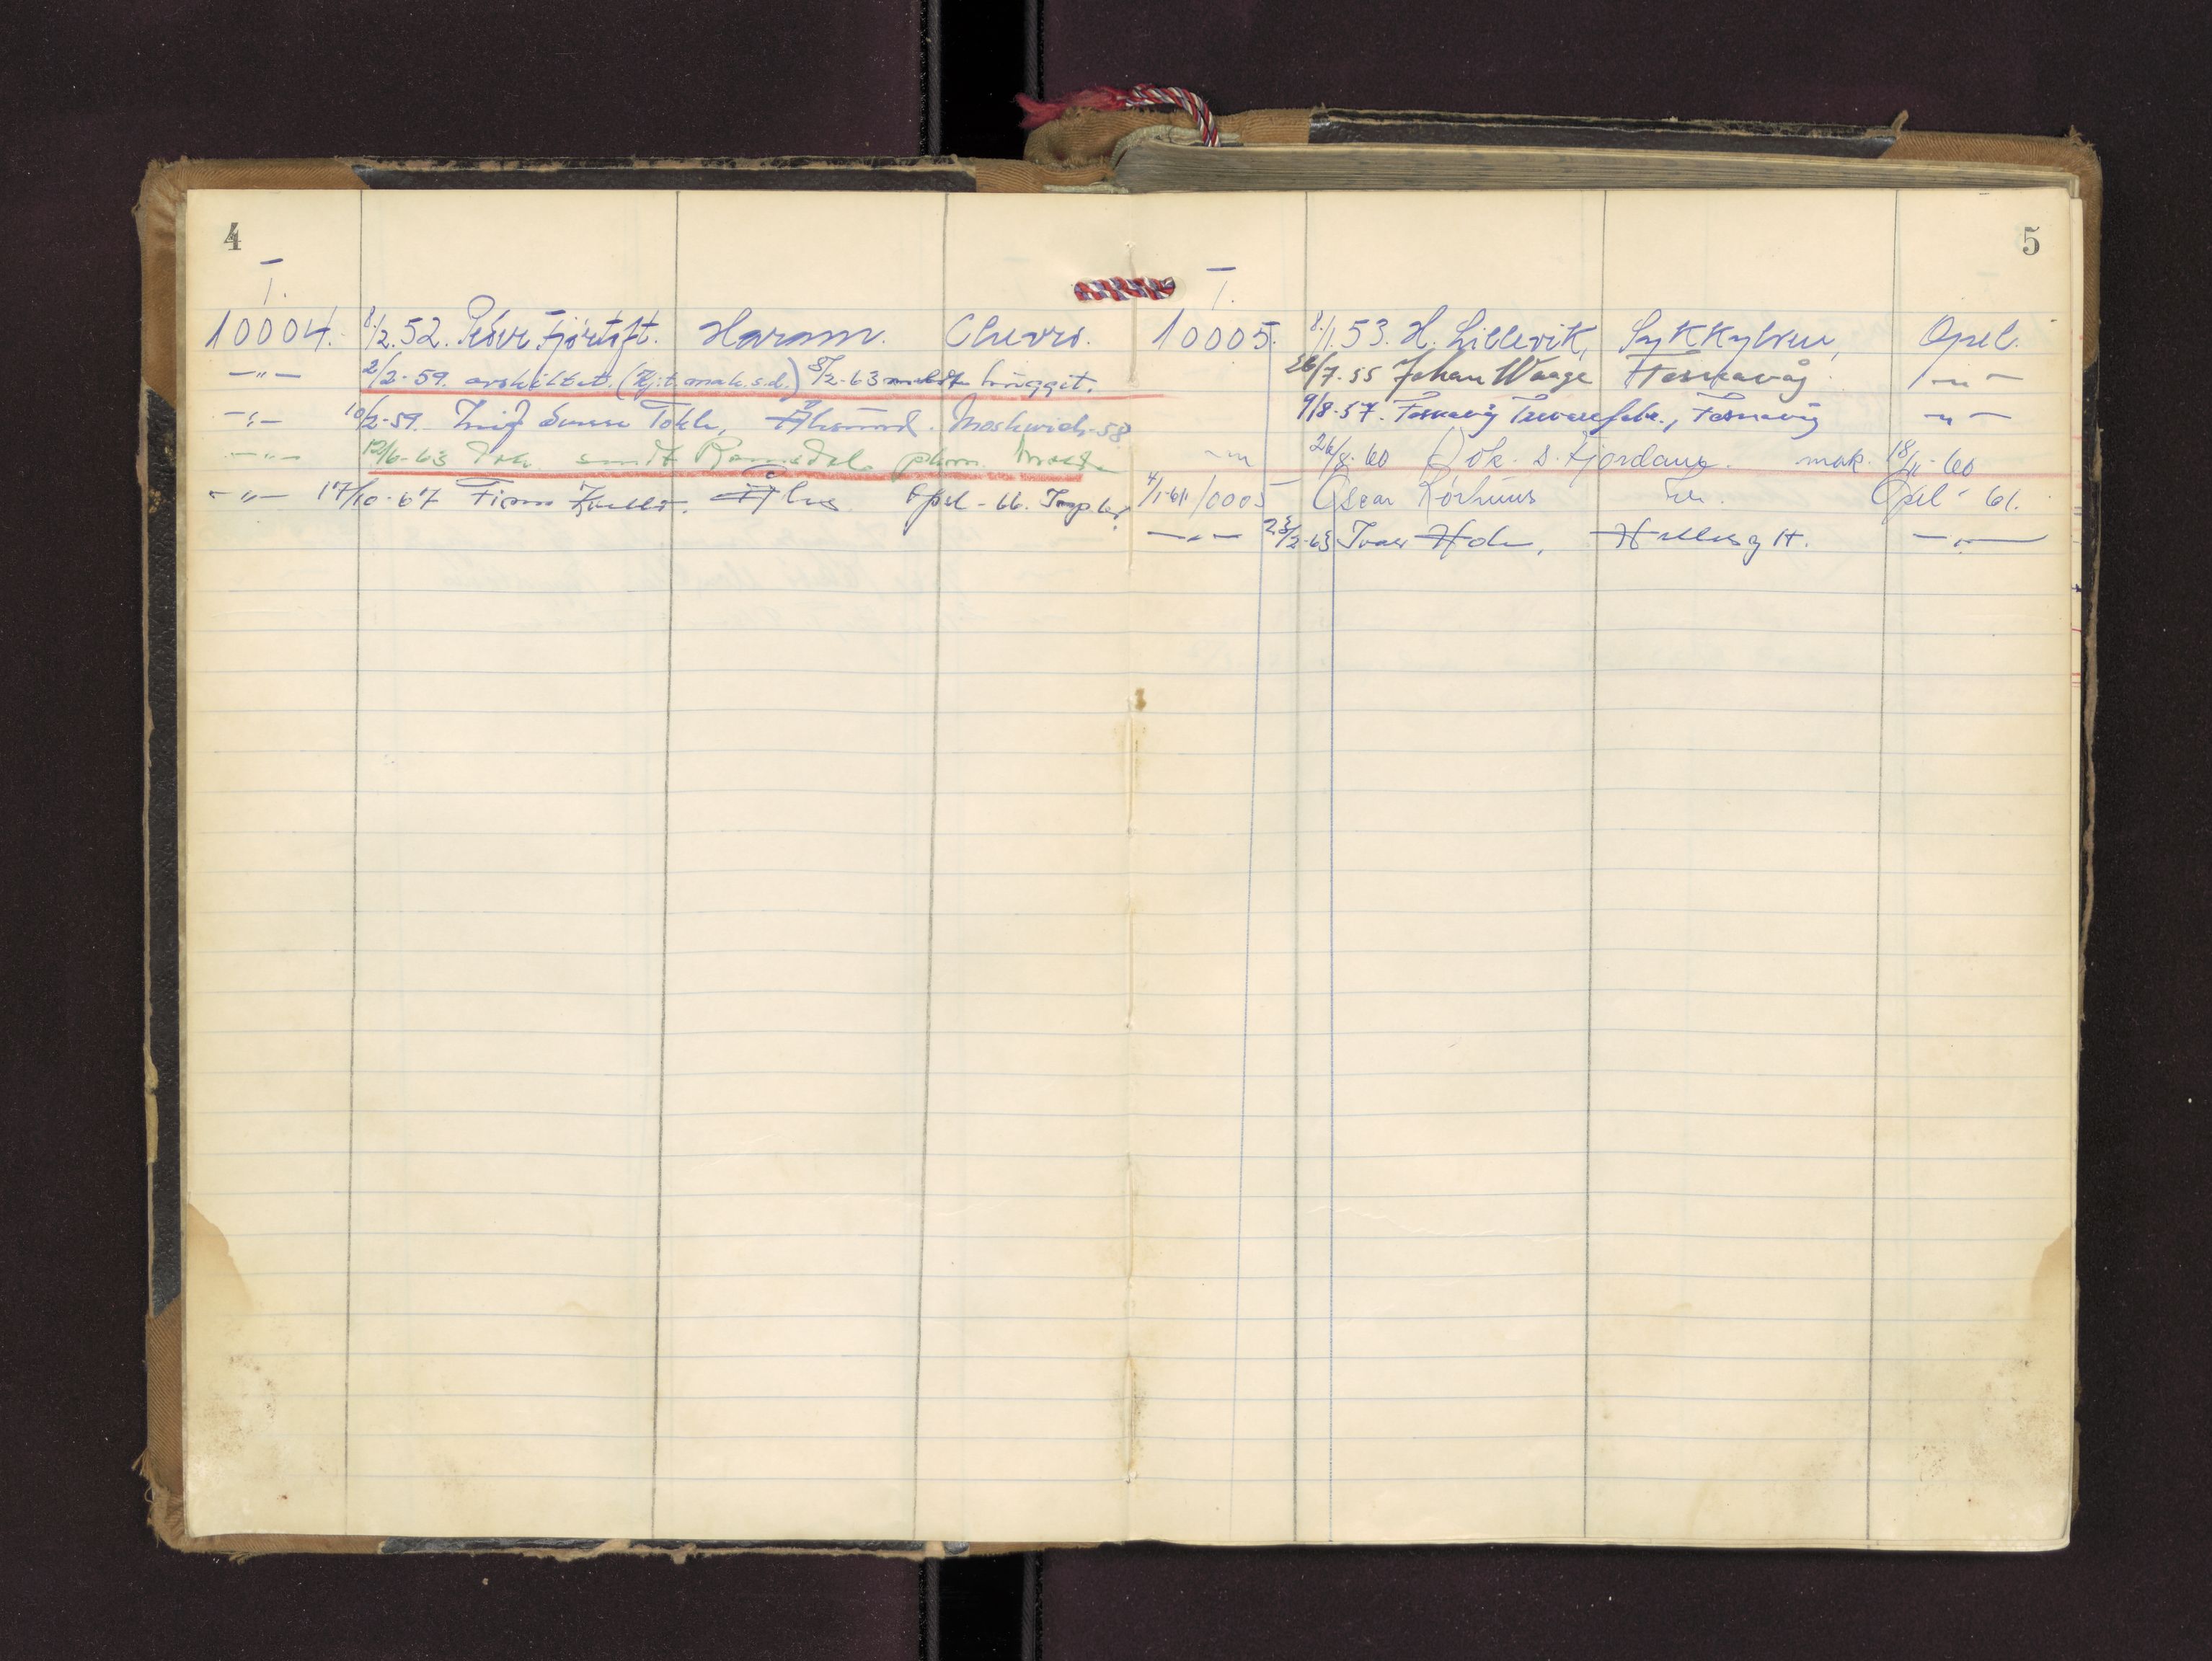 4
T.
10004. 8/2.52. Peder Fjørtoft. Haram. Chevro.
—"— 2/2-59. avskiltet. (Kj.t. mak. s.d.) 8/2-63 meldt hugget.
—"— 10/2-59. Tokle, Ålesund. Moskwich-58
—"— 12/6-63 Dok. sendt Romsdal Molde
—"— 17/10-67 Finn Å Opel - 66. Imp.
5
T.
10005. 8/1.53. H. Lillevik, Sykkylven, Opel.
26/7-55 Johan Waage Fosnavåg —"—
9/8-57. Fosnavåg Trevarefabr., Fosnavåg —"—
—"— 26/8-60 Dok. s. Fjordane. mak. 18/11-60
4/1-61 10005 Oscar Rørhuus Opel - 61.
—"— 23/2-63 Ivar Hole, Hellesylt. —"—